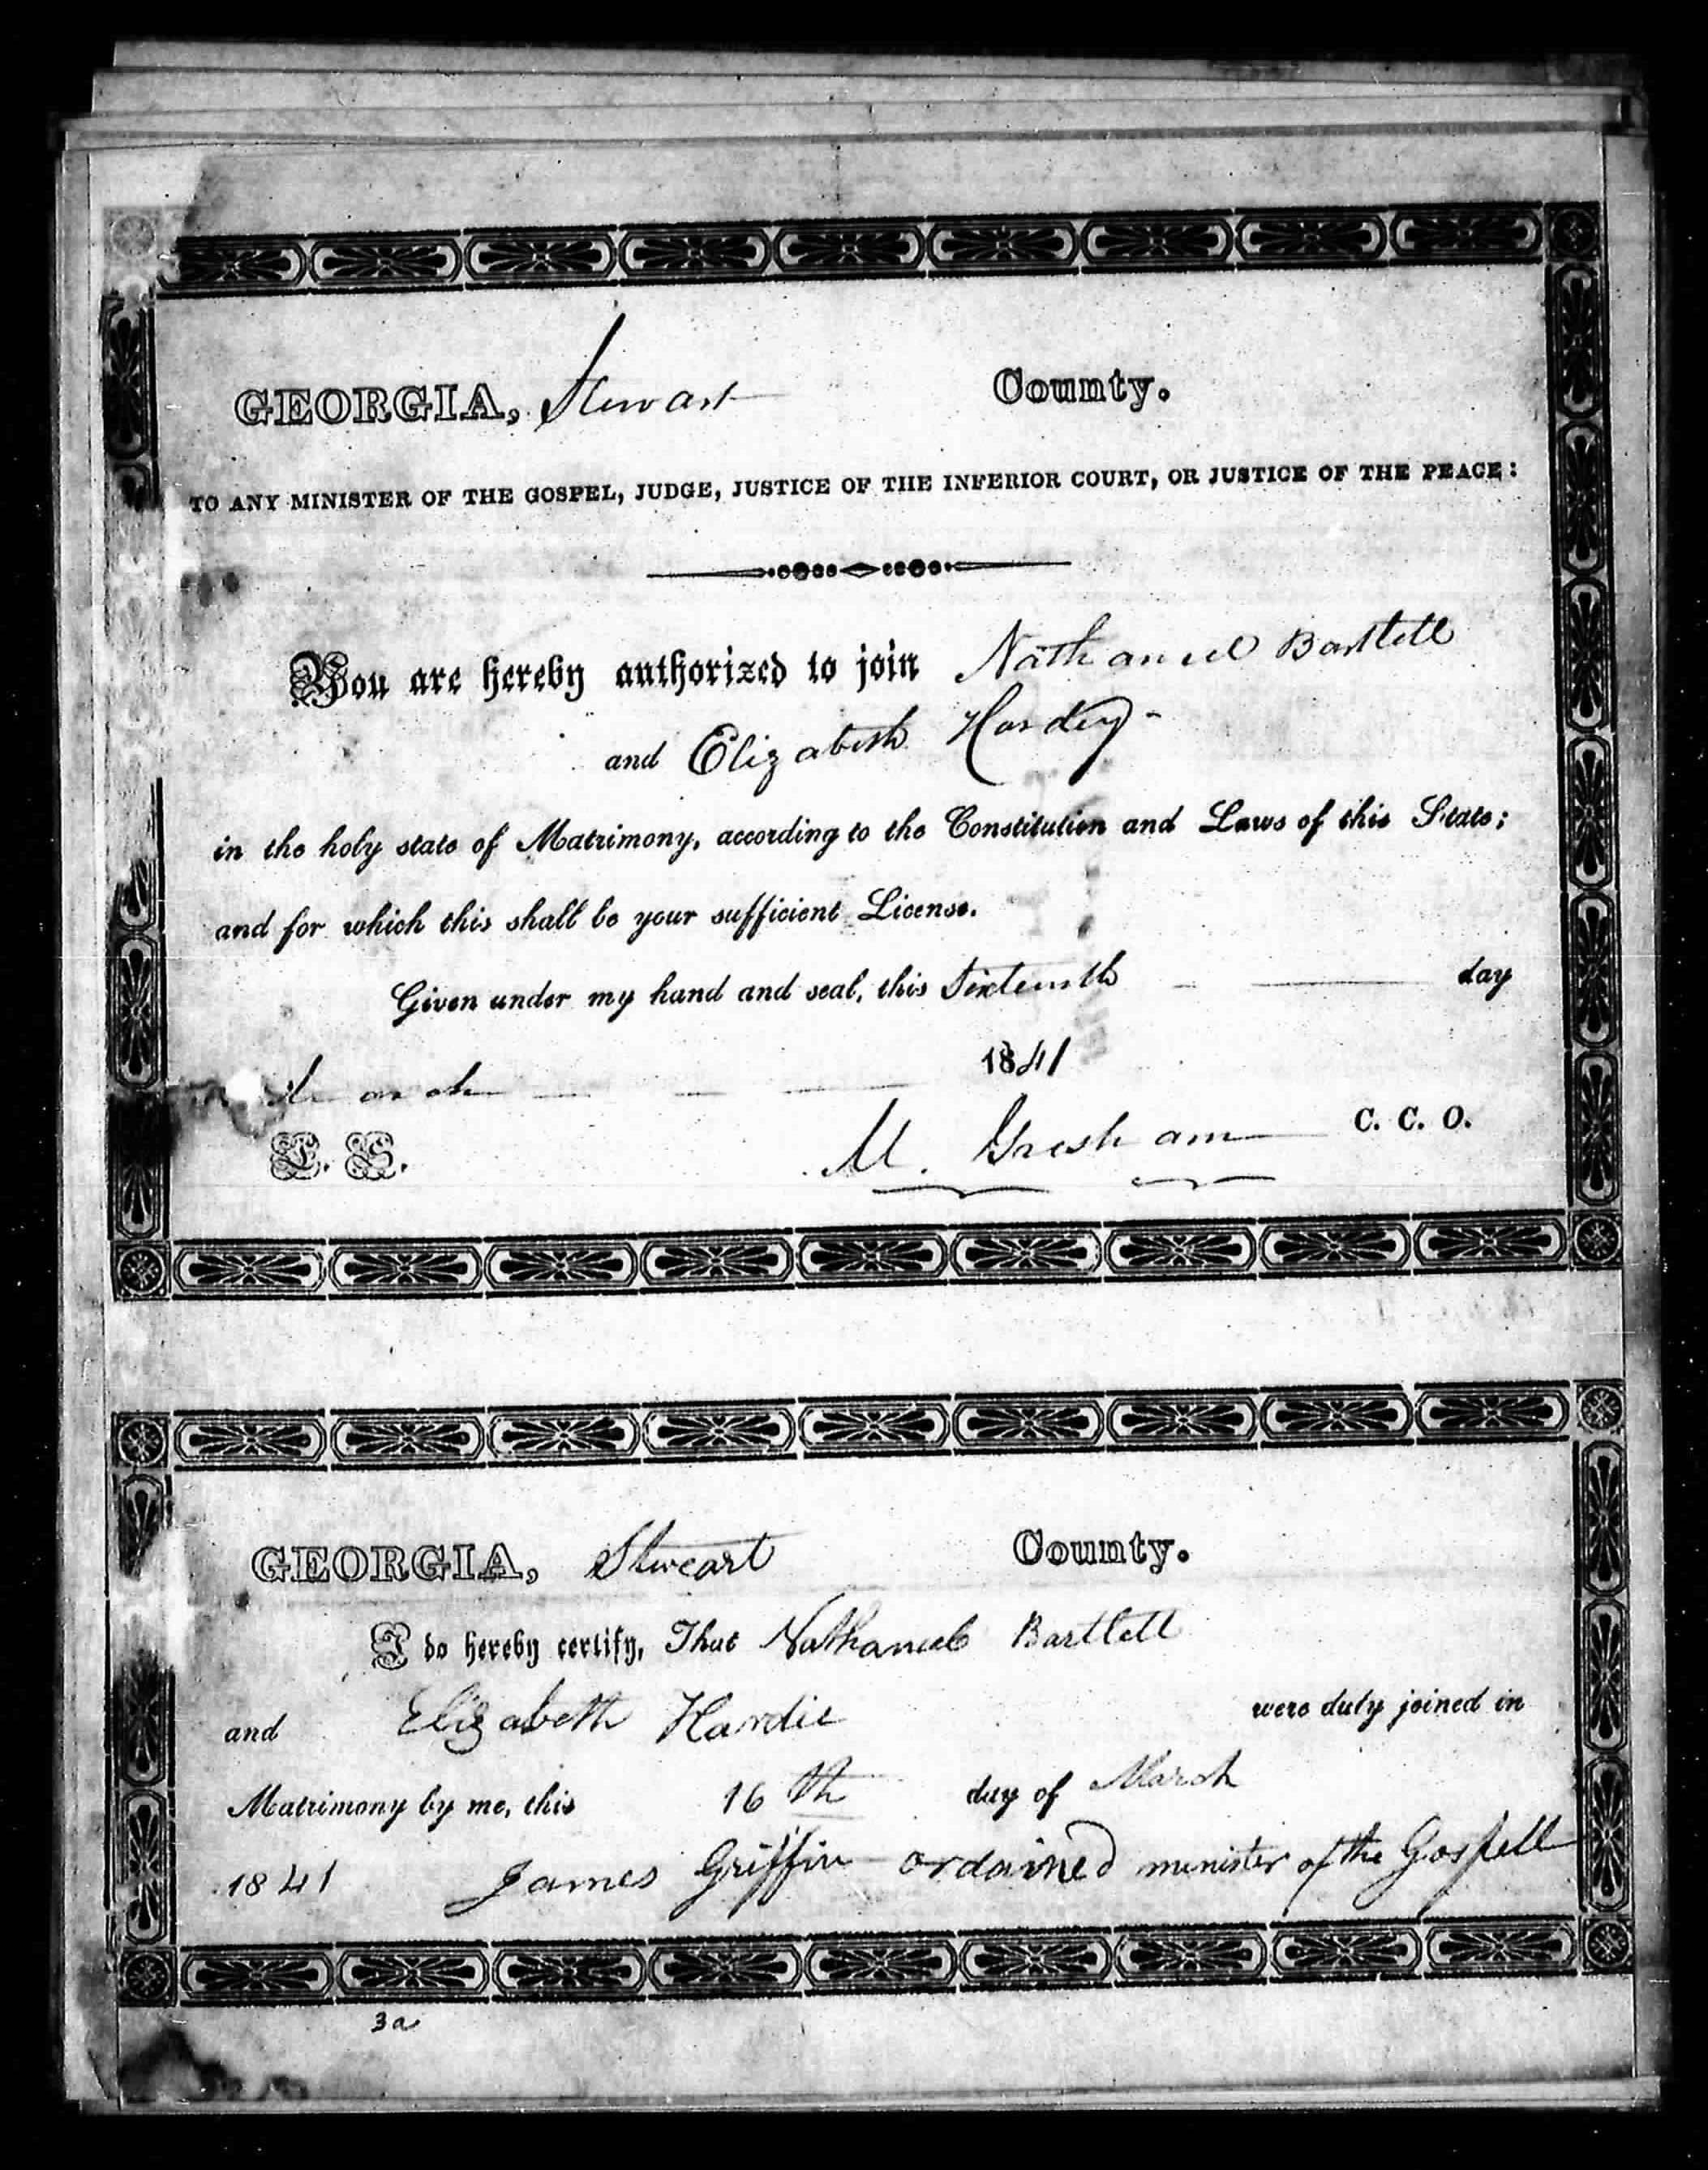 GEORGIA, Stewart County.
TO ANY MINISTER OF THE GOSPEL, JUDGE, JUSTICE OF THE INFERIOR COURT, OR JUSTICE OF THE PEACE:
You are hereby authorized to join Nathaniel Bartlett
and Elizabeth Hardey
in the holy state of Matrimony, according to the Constitution and Laws of this State;
and for which this shall be your sufficient License.
Given under my hand and seal, this Sixteenth day
March 1841
L. S. M. Gresham C. C. O.
GEORGIA, Stweart County.
I do hereby certify, That Nathaniel Bartlett
and Elizabeth Hardie were duly joined in
Matrimony by me, this 16th day of March
1841 James Griffin ordained minister of the Gospell
3a